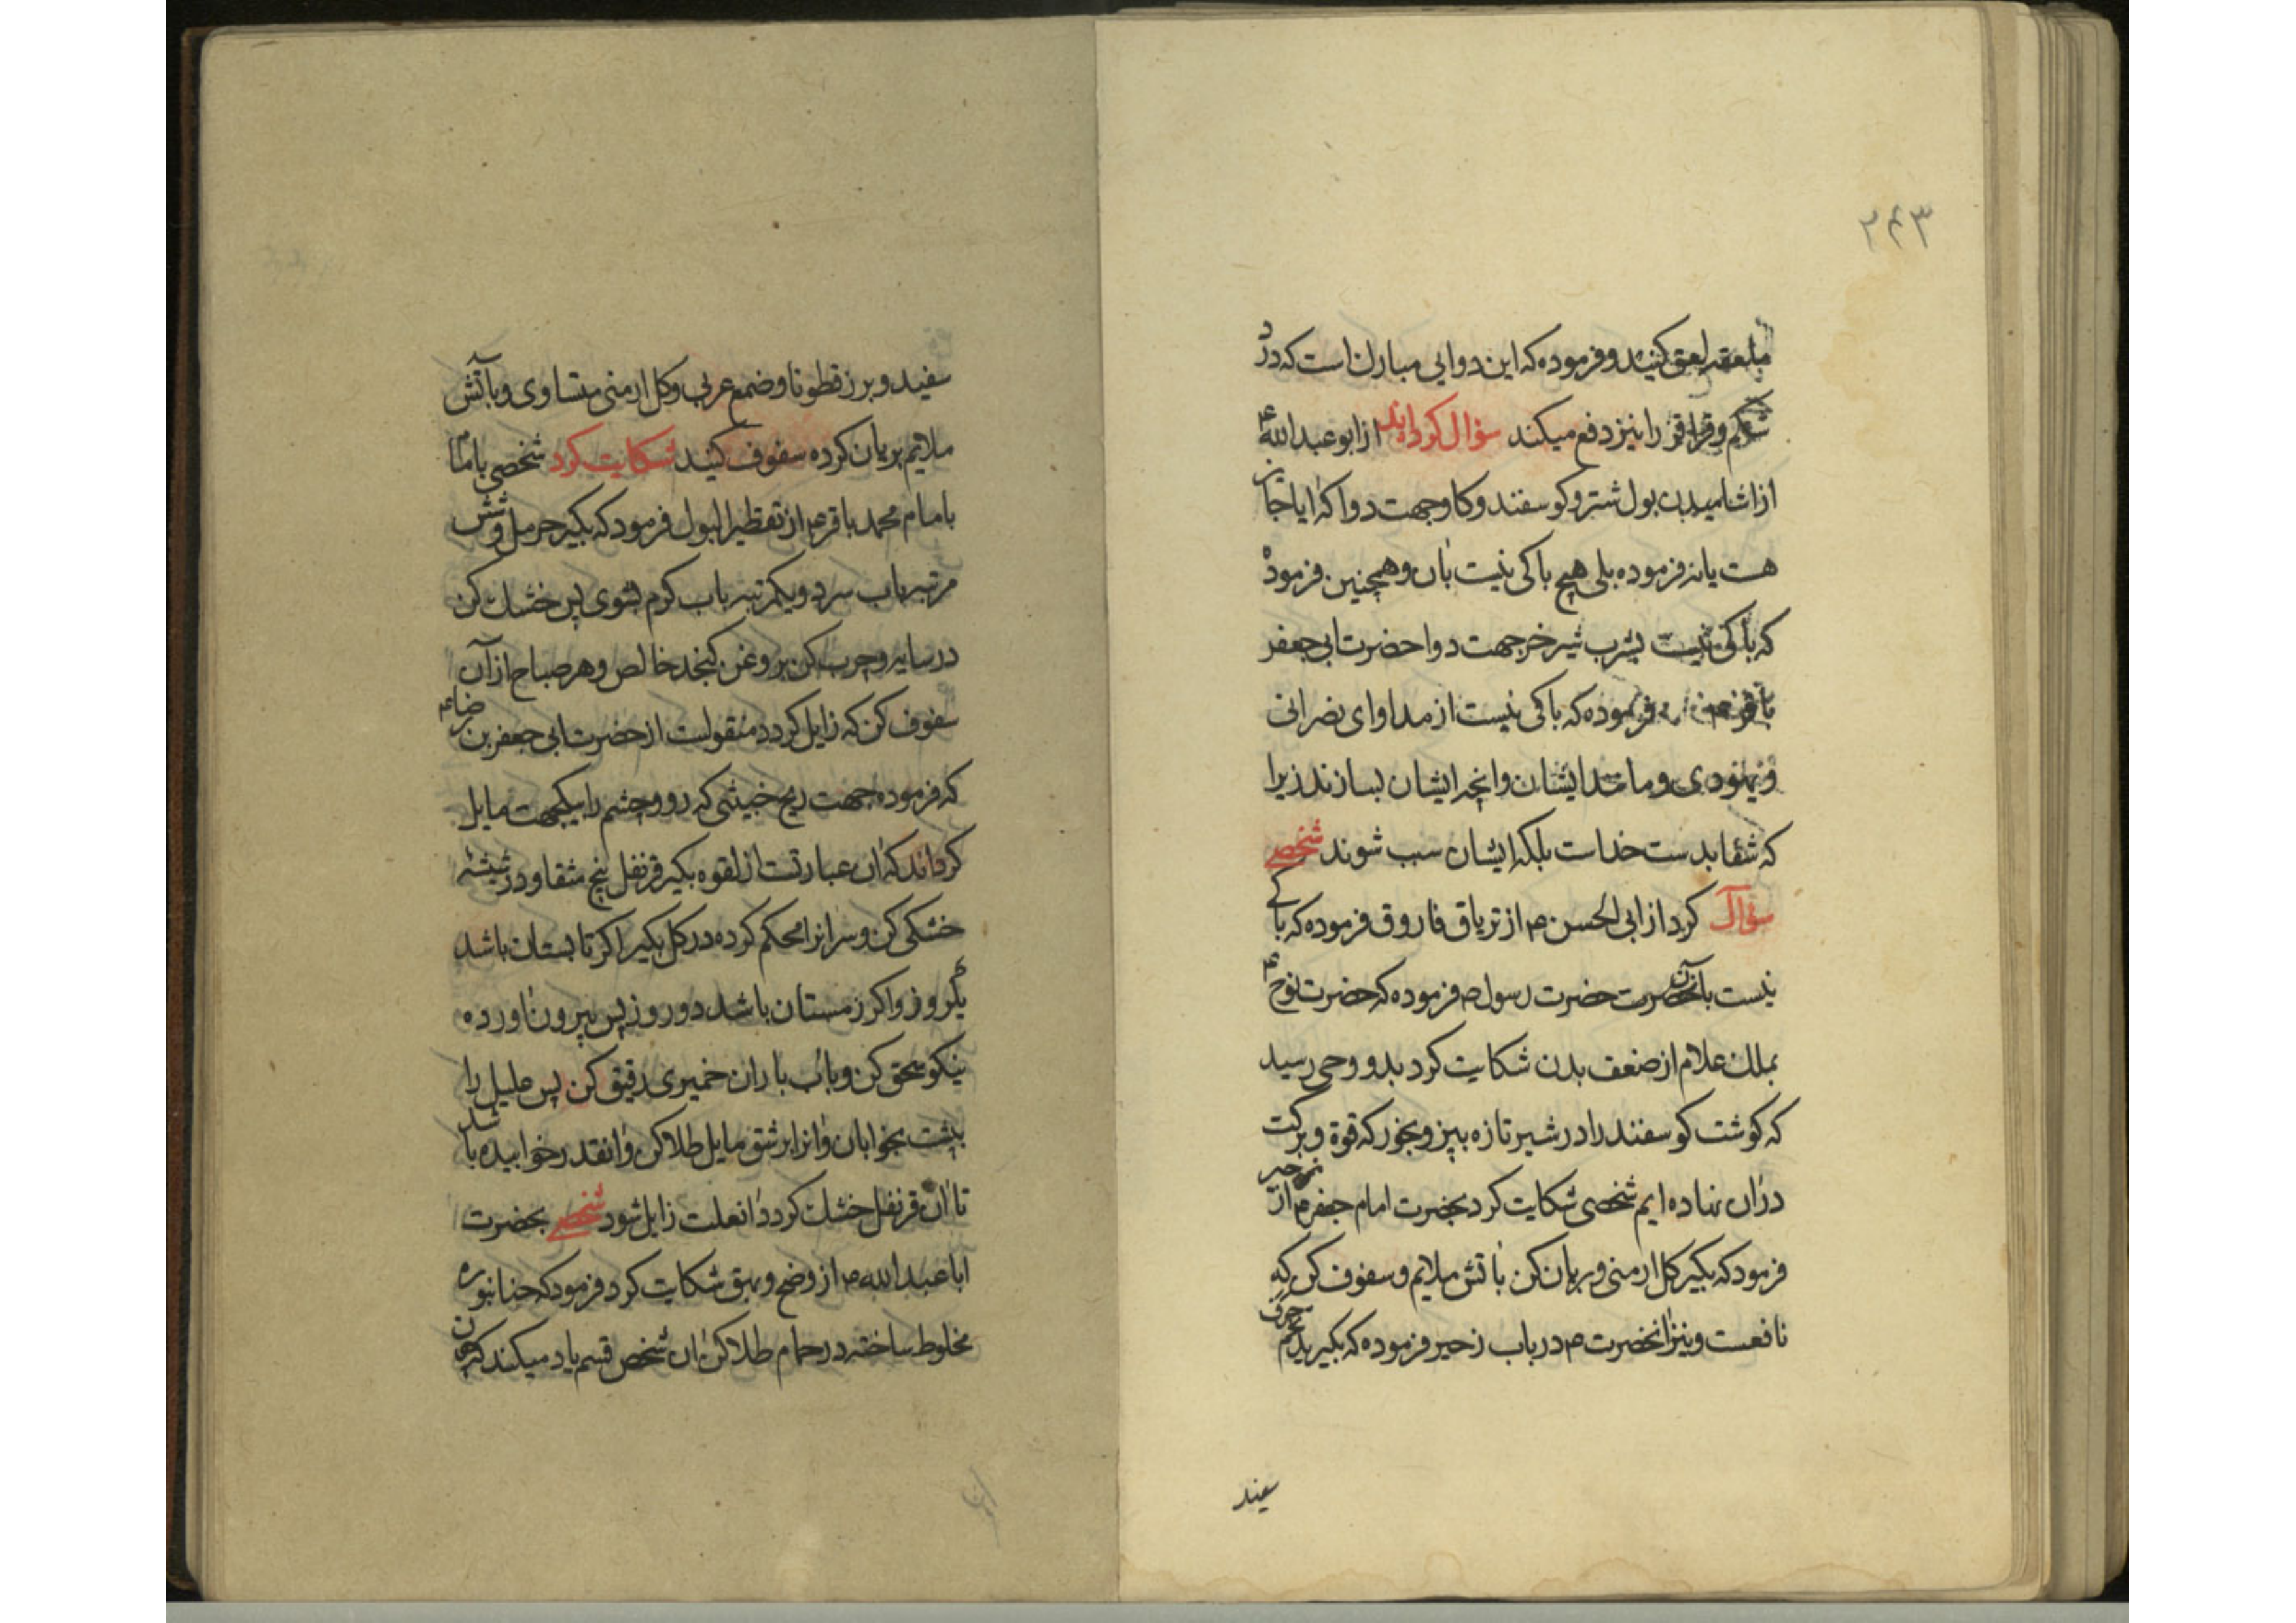 ۲۴۳
ملعقه لعق کنید و فرموده که این دوایی مبارک است که درد
شکم و قراقر را نیز دفع میکند سؤال کرده‌اند از ابوعبدالله ع
از اشامیدن بول شتر و کوسفند و کاو جهت دوا که ایا جایز
هست یا نه فرموده بلی هیچ باکی نیست بان و همچنین فرموده
که باکی نیست بشرب شیر خر جهت دوا حضرت ابی جعفر
باقر فرموده که باکی نیست از مداوای نصرانی
و یهودی و مانند ایشان و انچه ایشان بسازند زیرا
که شفا بدست خداست بلکه ایشان سبب شوند شخصی
سؤال کرد از ابی الحسن ع از تریاق فاروق فرموده که باکی
نیست بآن حضرت حضرت رسول ص فرموده که حضرت نوح ع
بملک علام از ضعف بدن شکایت کرد بدو وحی رسید
که کوشت کوسفند را در شیر تازه بپز و بخور که قوة و برکت
دران نهاده ایم شخصی شکایت کرد بحضرت امام جعفر ع از زحیر
فرمود که بکیر کل ارمنی و بریان کن باتش ملایم و سفوف کن که
نافعست و نیز انحضرت ع در باب زحیر فرموده که بکیرید تخم خرف
سفید
سفید و برز قطونا و ضمع عربی و کل ارمنی متساوی و بآتش
ملایم بریان کرده سفوف کنید شکایت کرد شخصی باما
بامام محمد باقر ع از تقطیر البول فرمود که بکیر حرمل و شش
مرتبه باب سرد و یکمرتبه باب کرم بشوی پس خشک کن
در سایه و چرب کن بروغن کنجد خالص و هر صباح از آن
سفوف کن که زایل کردد منقولست از حضرت ابی جعفر بن رضا ع
که فرموده جهت ریح خبیثی که رو و چشم را بیکجهت مایل
کرداند که ان عبارتست از لقوه بکیر قرنفل پنج مثقا و در شیشهٔ
خشکی کن و سر انرا محکم کرده در کل بکیر اکر تابستان باشد
یکروز و اکر زمستان باشد دو روز پس بیرون اورده
نیکو سحق کن و باب باران خمیری رقیق کن پس علیل را
بپشت بخوابان و انرا بر شق مایل طلا کن و انقدر خوابیده باشد
تا ان قرنفل خشک کردد انعلت زایل شود شخصی بحضرت
ابا عبدالله ع از وضح و بهق شکایت کرد فرمود که حنا بنوره
مخلوط ساخته در حمام طلا کن ان شخص قسم یاد میکند که چون